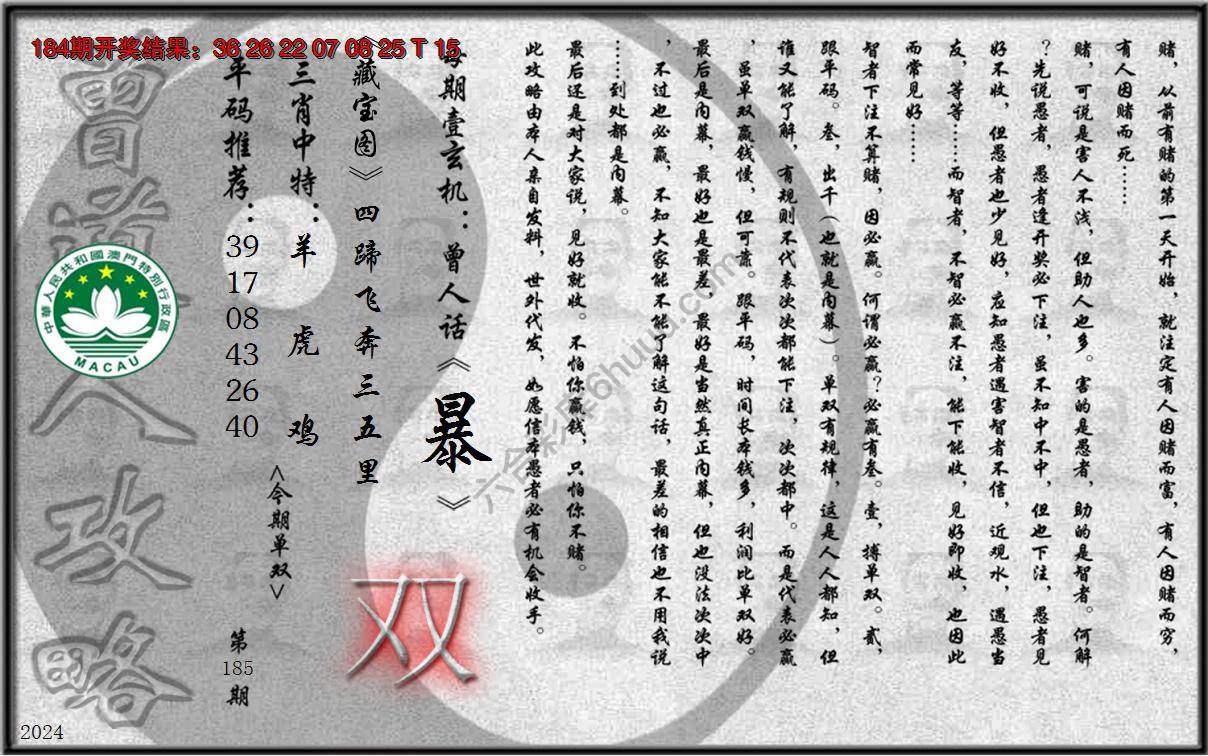 184期开奖结果：36 26 22 07 08 25 T 15
赌，从前有赌的第一天开始，就注定有人因赌而富，有人因赌而穷，
有人因赌而死……
赌，可说是害人不浅，但助人也多。害的是愚者，助的是智者。何解
？先说愚者，愚者逢开奖必下注，虽不知中不中，但也下注，愚者见
好不收，但愚者也少见好，应知愚者遇害智者不信，近观水，遇愚当
友，等等……而智者，不智必赢不注，能下能收，见好即收，也因此
而常见好……
智者下注不算赌，因必赢。何谓必赢？必赢有叁。壹，搏单双。贰，
跟平码。叁，出千（也就是内幕）。单双有规律，这是人人都知，但
谁又能了解，有规则不代表次次都能下注，次次都中。而是代表必赢
，虽单双赢钱慢，但可靠。跟平码，时间长本钱多，利润比单双好。
最后是内幕，最好也是最差，最好是当然真正内幕，但也没法次次中
，不过也必赢，不知大家能不能了解这句话，最差的相信也不用我说
……到处都是内幕。
最后还是对大家说，见好就收。不怕你赢钱，只怕你不赌。
此攻略由本人亲自发料，世外代发，如愿信本愚者必有机会收手。
每期壹玄机：曾人话《暴》
《藏宝图》四蹄飞奔三五里
双
三肖中特：羊 虎 鸡
<今期单双>
平码推荐：39 17 08 43 26 40
第185期
曾道人攻略
中華人民共和國澳門特別行政區
MACAU
六合彩库6huuu.com
2024